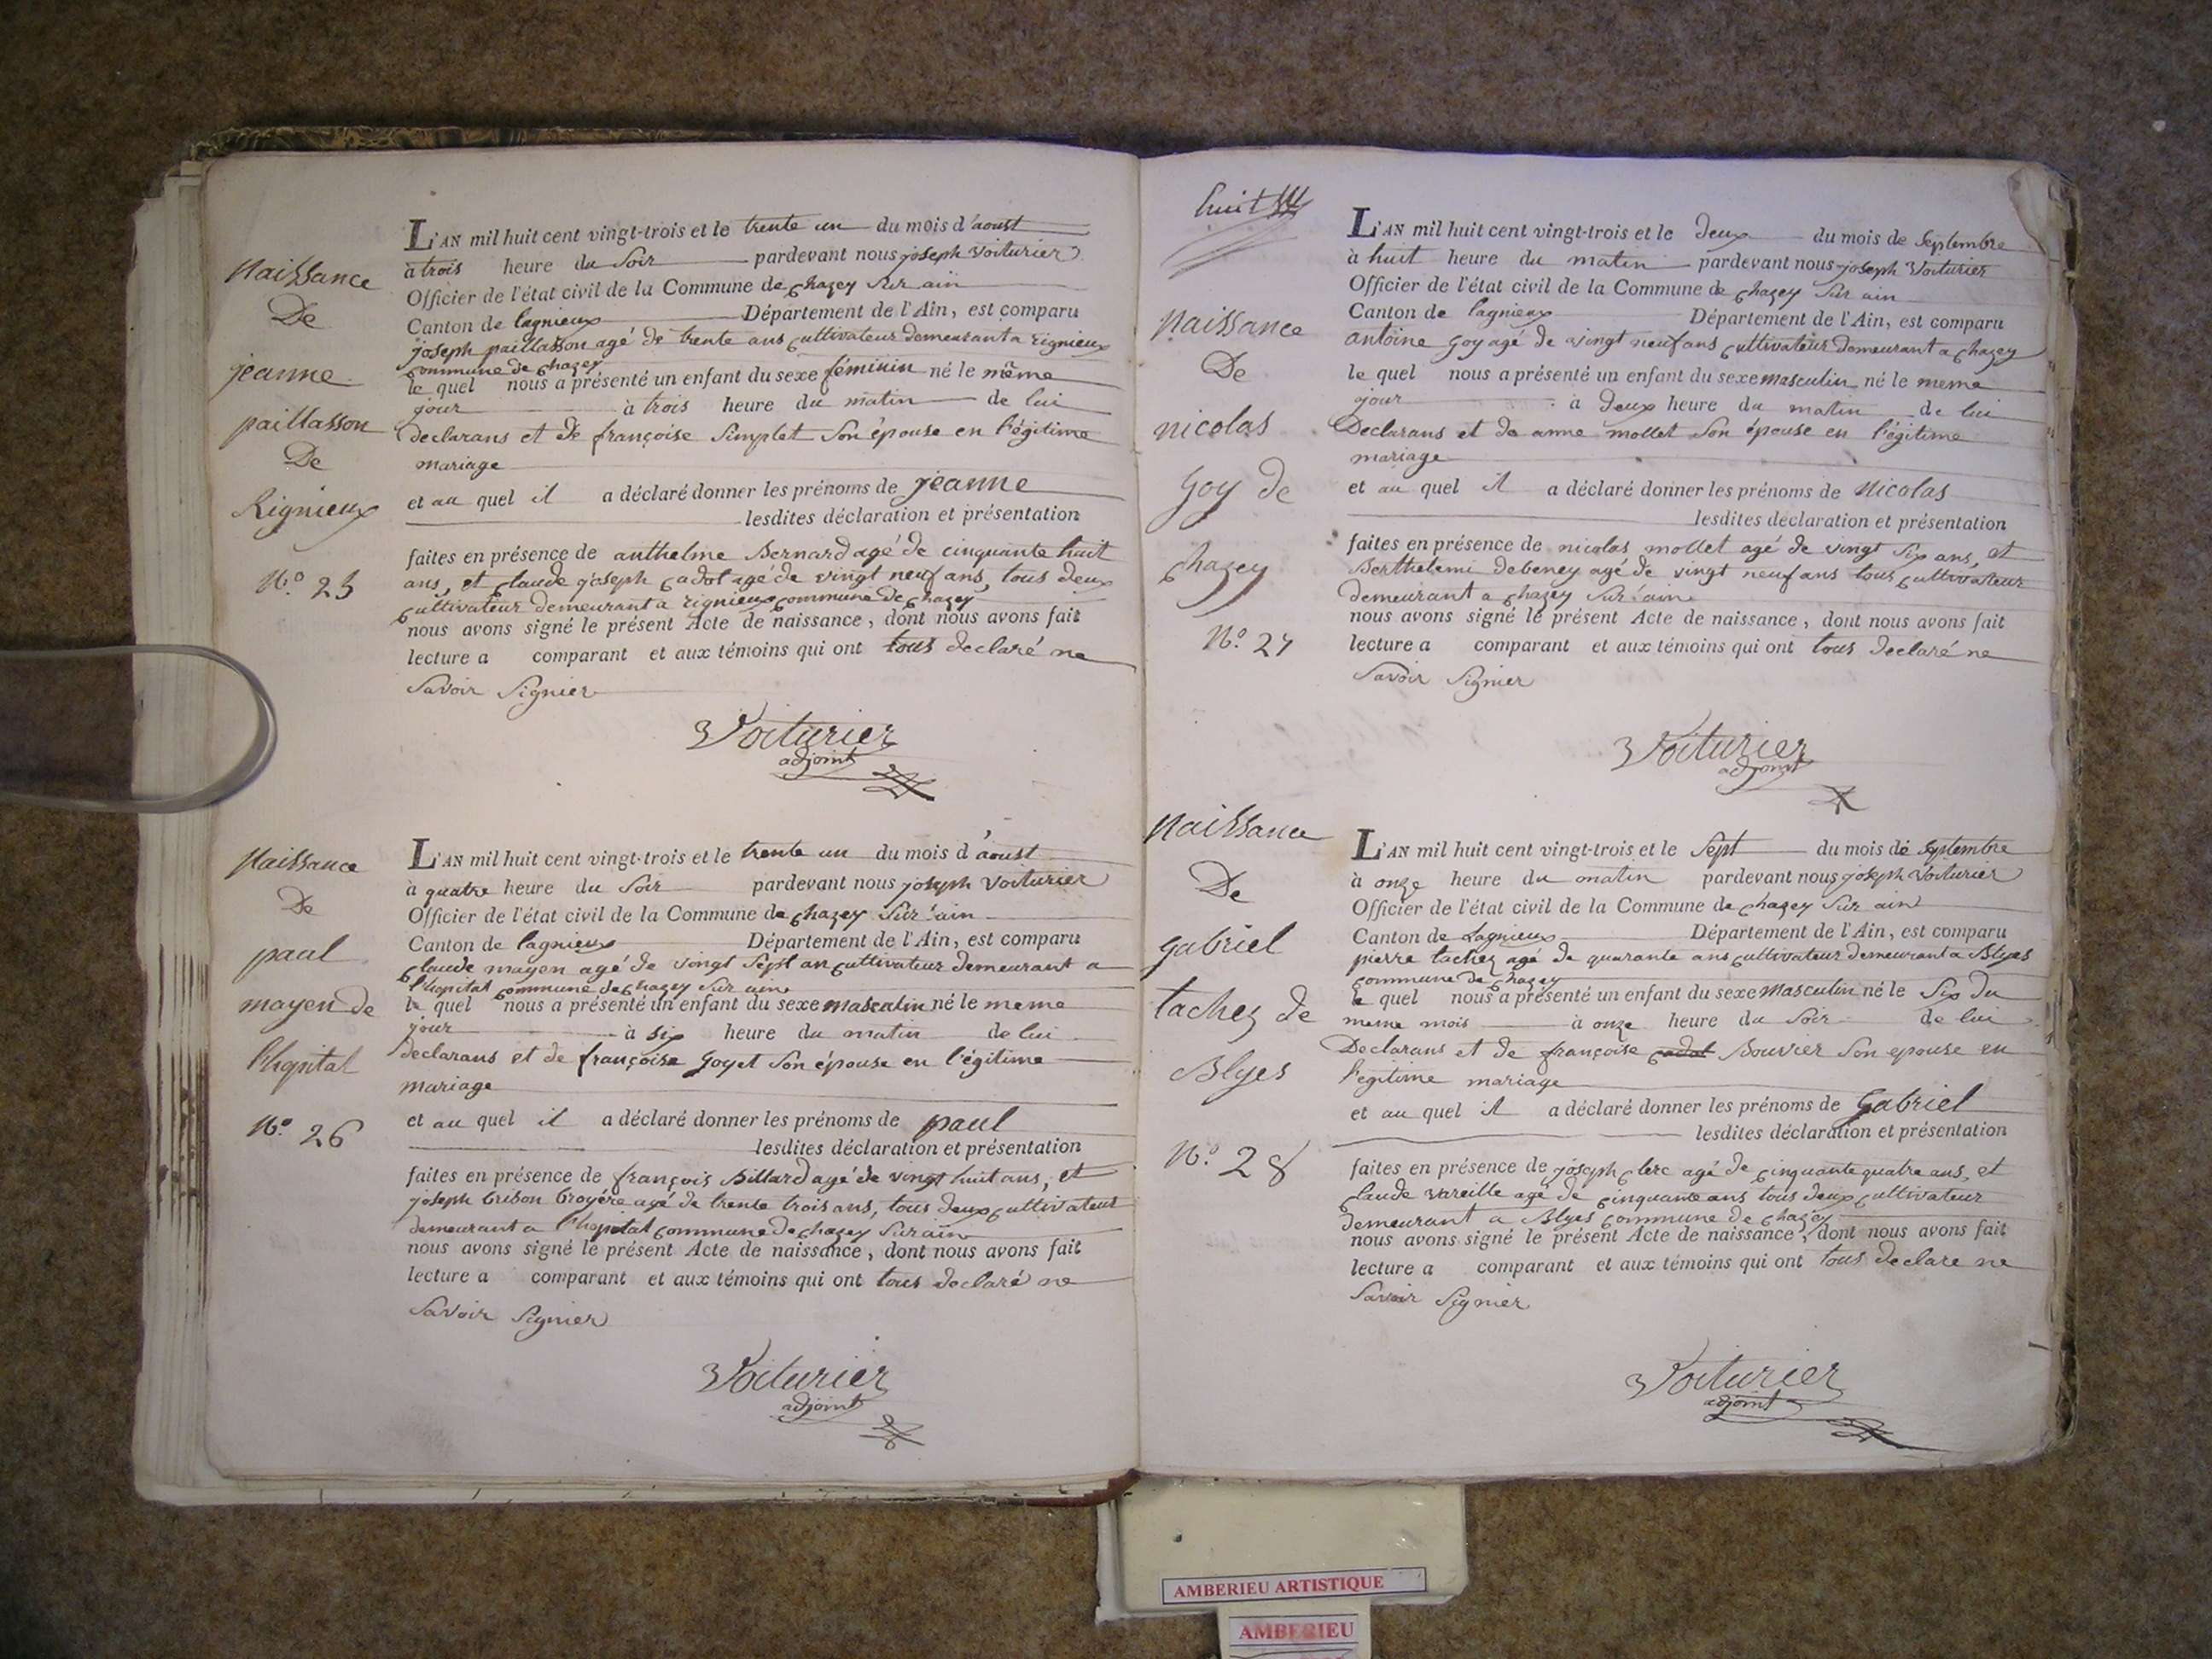 Naissance
De
jeanne
paillasson
De
Rignieux
N.º 25
L'AN mil huit cent vingt-trois et le trente un du mois d'aoust
à trois heure du Soir pardevant nous joseph Voiturier
Officier de l'état civil de la Commune de chazey Sur ain
Canton de lagnieux Département de l'Ain, est comparu
joseph paillasson agé de trente ans cultivateur demeurant a rignieux
commune de chazey
le quel nous a présenté un enfant du sexe féminin né le même
jour à trois heure du matin de lui
declarans et de françoise Simplet Son épouse en légitime
mariage
et au quel il a déclaré donner les prénoms de jeanne
lesdites déclaration et présentation
faites en présence de anthelme Bernard agé de cinquante huit
ans, et claude joseph cadot agé de vingt neuf ans, tous deux
cultivateur demeurant a rignieux commune de chazey
nous avons signé le présent Acte de naissance, dont nous avons fait
lecture a comparant et aux témoins qui ont tous declaré ne
Savoir Signier
Voiturier
adjoint
Naissance
De
paul
mayen de
l'hopital
N.º 26
L'AN mil huit cent vingt-trois et le trente un du mois d'aoust
à quatre heure du Soir pardevant nous joseph Voiturier
Officier de l'état civil de la Commune de chazey Sur ain
Canton de lagnieux Département de l'Ain, est comparu
claude mayen agé de vingt Sept an cultivateur demeurant a
l'hopital commune de chazey Sur ain
le quel nous a présenté un enfant du sexe masculin né le meme
jour à six heure du matin de lui
declarans et de françoise Goyet Son épouse en légitime
mariage
et au quel il a déclaré donner les prénoms de paul
lesdites déclaration et présentation
faites en présence de françois Billard agé de vingt huit ans, et
joseph Broyére agé de trente trois ans, tous deux cultivateur
demeurant a l'hopital commune de chazey Sur ain
nous avons signé le présent Acte de naissance, dont nous avons fait
lecture a comparant et aux témoins qui ont tous declaré ne
Savoir Signier
Voiturier
adjoint
huit
Naissance
De
nicolas
Goy de
chazey
N.º 27
L'AN mil huit cent vingt-trois et le deux du mois de Septembre
à huit heure du matin pardevant nous joseph Voiturier
Officier de l'état civil de la Commune de chazey Sur ain
Canton de lagnieux Département de l'Ain, est comparu
antoine Goy agé de vingt neuf ans cultivateur demeurant a chazey
le quel nous a présenté un enfant du sexe masculin né le meme
jour à deux heure du matin de lui
Declarans et de anne mollet Son épouse en légitime
mariage
et au quel il a déclaré donner les prénoms de Nicolas
lesdites declaration et présentation
faites en présence de nicolas mollet agé de vingt six ans, et
Berthelemi debeney agé de vingt neuf ans tous cultivateur
demeurant a chazey Sur ain
nous avons signé le présent Acte de naissance, dont nous avons fait
lecture a comparant et aux témoins qui ont tous declaré ne
Savoir Signier
Voiturier
adjoint
Naissance
De
Gabriel
tachez de
Blyes
N.º 28
L'AN mil huit cent vingt-trois et le Sept du mois de Septembre
à onze heure du matin pardevant nous joseph Voiturier
Officier de l'état civil de la Commune de chazey Sur ain
Canton de Lagnieux Département de l'Ain, est comparu
pierre tachez agé de quarante ans cultivateur demeurant a Blyes
commune de chazey
le quel nous a présenté un enfant du sexe masculin né le Six du
meme mois à onze heure du Soir de lui
Declarans et de françoise cadot Bouvier Son epouse en
legitime mariage
et au quel il a déclaré donner les prénoms de Gabriel
lesdites déclaration et présentation
faites en présence de joseph clerc agé de cinquante quatre ans, et
claude vareille agé de cinquante ans tous deux cultivateur
demeurant a Blyes commune de chazey
nous avons signé le présent Acte de naissance, dont nous avons fait
lecture a comparant et aux témoins qui ont tous declare ne
Savoir Signier
Voiturier
adjoint
AMBERIEU ARTISTIQUE
AMBERIEU